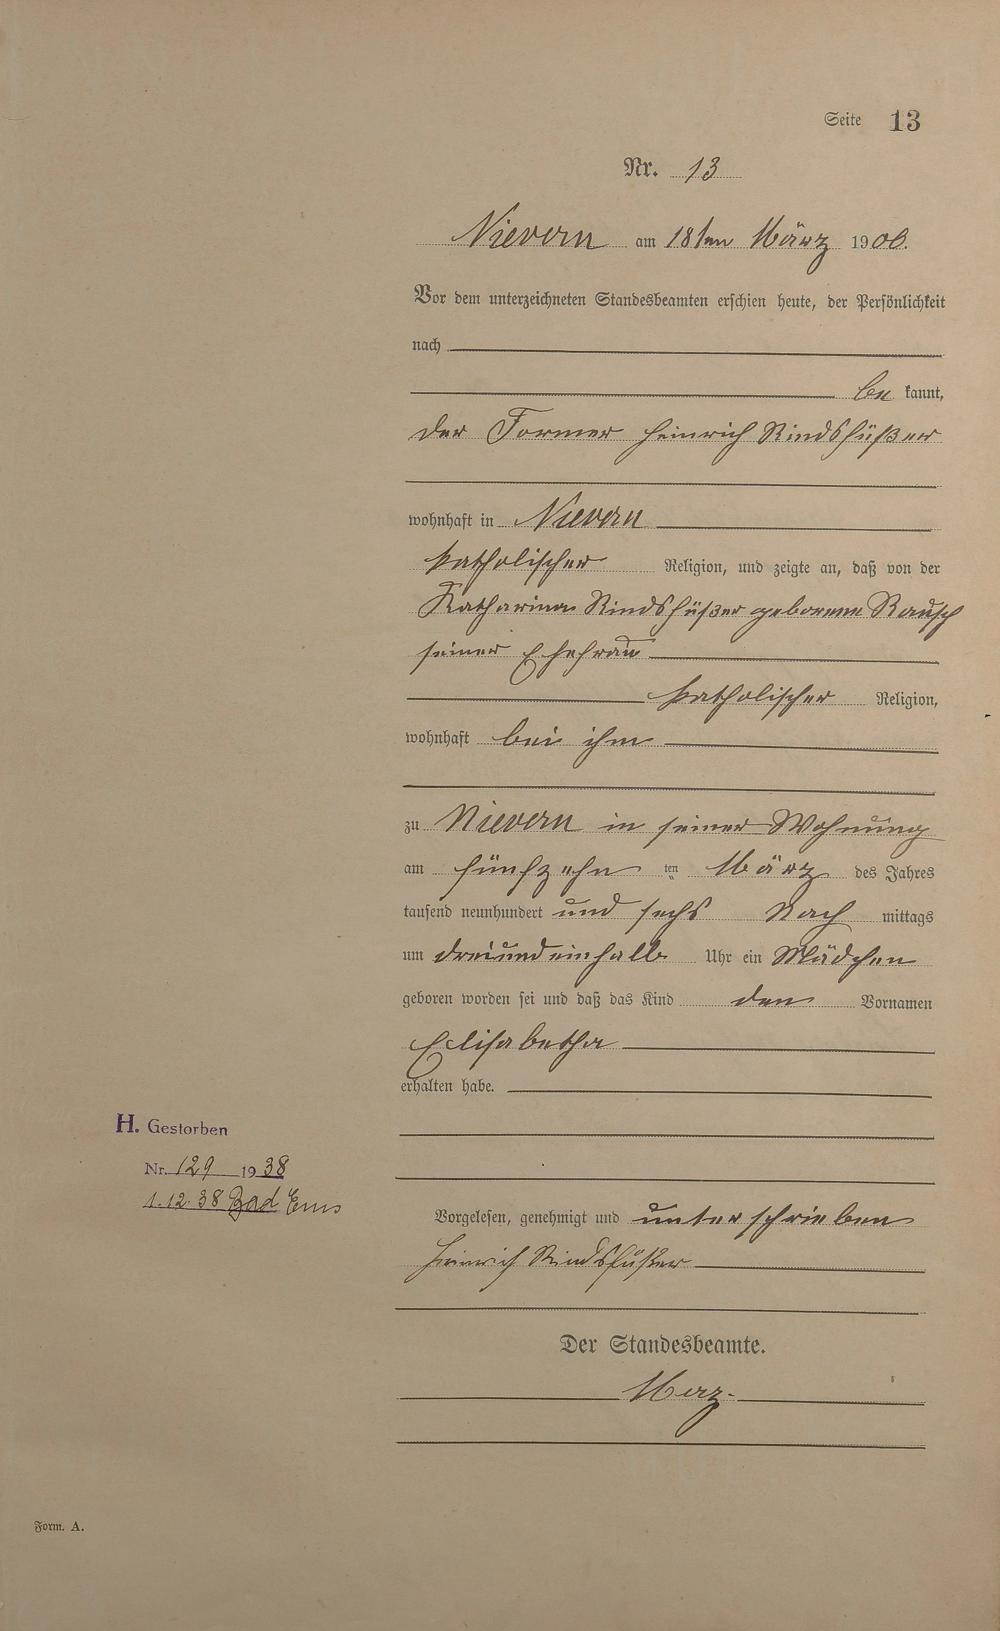 Seite 13
Nr. 13
Nievern am 18ten März 1906.
Vor dem unterzeichneten Standesbeamten erschien heute, der Persönlichkeit
nach
be kannt,
der Former Heinrich Rindsfüßer
wohnhaft in Nievern
katholischer Religion, und zeigte an, daß von der
Katharina Rindsfüßer geborene Rausch
seiner Ehefrau
katholischer Religion,
wohnhaft bei ihm
zu Nievern in seiner Wohnung
am fünfzehn ten März des Jahres
tausend neunhundert und sechs Nach mittags
um dreiundeinhalb Uhr ein Mädchen
geboren worden sei und daß das Kind den Vornamen
Elisabetha
erhalten habe.
H. Gestorben
Nr. 129 1938
1.12.38 Bad Ems
Vorgelesen, genehmigt und unterschrieben
Heinrich Rindsfüßer
Der Standesbeamte.
Form. A.